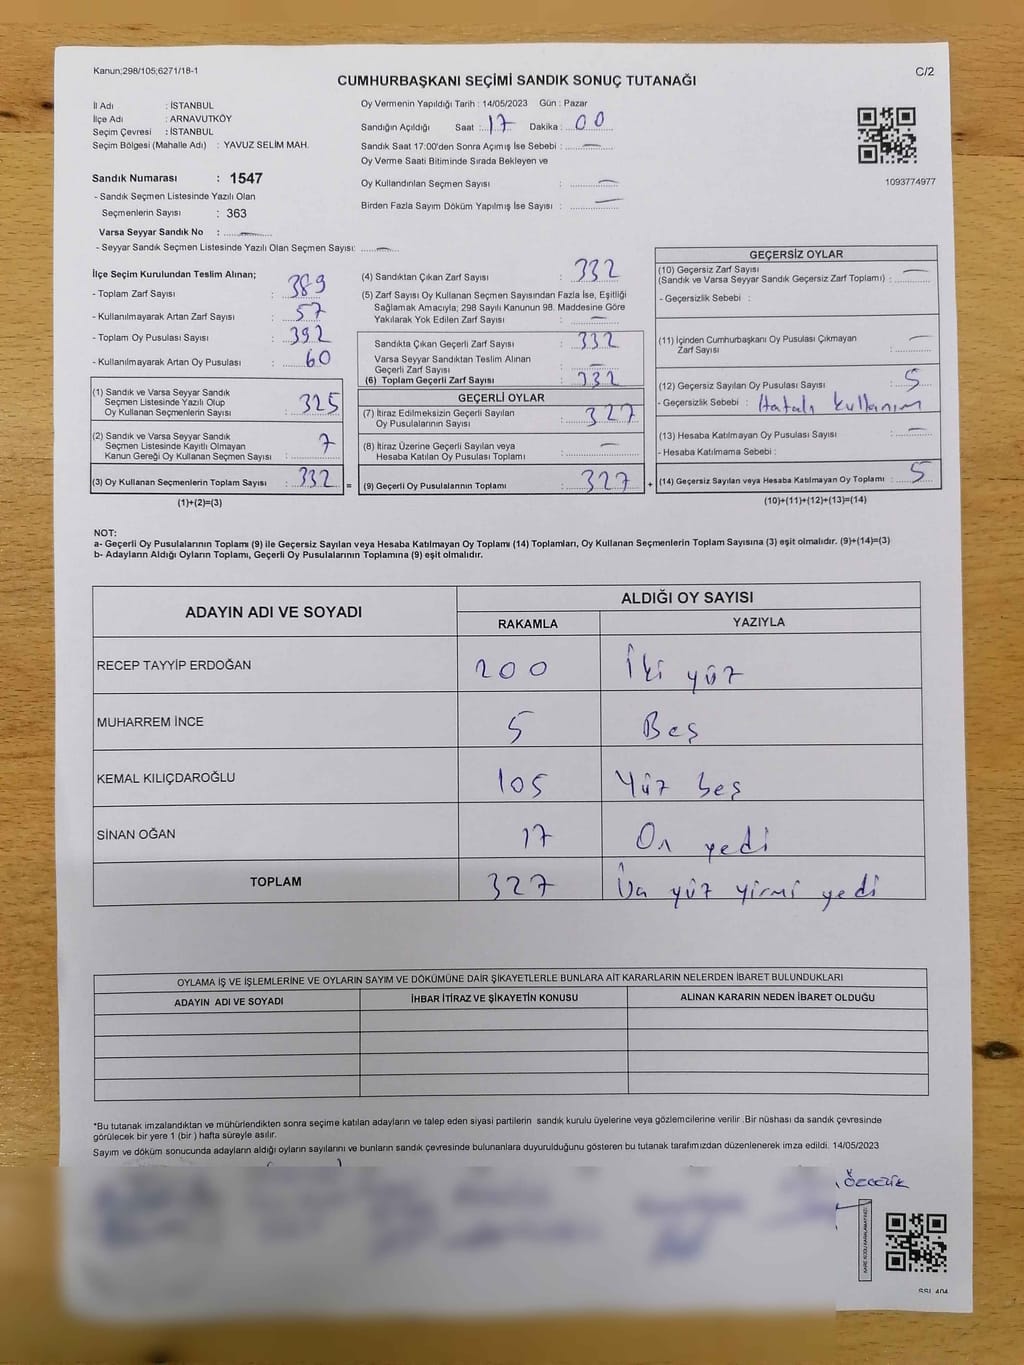 Kanun;298/105;6271/18-1
C/2
CUMHURBAŞKANI SEÇİMİ SANDIK SONUÇ TUTANAĞI
İl Adı : İSTANBUL
İlçe Adı : ARNAVUTKÖY
Seçim Çevresi : İSTANBUL
Seçim Bölgesi (Mahalle Adı) : YAVUZ SELİM MAH.
Sandık Numarası : 1547
- Sandık Seçmen Listesinde Yazılı Olan
Seçmenlerin Sayısı : 363
Varsa Seyyar Sandık No :
- Seyyar Sandık Seçmen Listesinde Yazılı Olan Seçmen Sayısı:
Oy Vermenin Yapıldığı Tarih : 14/05/2023 Gün : Pazar
Sandığın Açıldığı Saat : 17 Dakika : 00
Sandık Saat 17:00'den Sonra Açımış İse Sebebi :
Oy Verme Saati Bitiminde Sırada Bekleyen ve
Oy Kullandırılan Seçmen Sayısı :
Birden Fazla Sayım Döküm Yapılmış İse Sayısı :
1093774977
İlçe Seçim Kurulundan Teslim Alınan;
- Toplam Zarf Sayısı : 389
- Kullanılmayarak Artan Zarf Sayısı : 57
- Toplam Oy Pusulası Sayısı : 392
- Kullanılmayarak Artan Oy Pusulası : 60
(1) Sandık ve Varsa Seyyar Sandık
Seçmen Listesinde Yazılı Olup
Oy Kullanan Seçmenlerin Sayısı : 325
(2) Sandık ve Varsa Seyyar Sandık
Seçmen Listesinde Kayıtlı Olmayan
Kanun Gereği Oy Kullanan Seçmen Sayısı : 7
(3) Oy Kullanan Seçmenlerin Toplam Sayısı : 332 =
(1)+(2)=(3)
(4) Sandıktan Çıkan Zarf Sayısı : 332
(5) Zarf Sayısı Oy Kullanan Seçmen Sayısından Fazla İse, Eşitliği
Sağlamak Amacıyla; 298 Sayılı Kanunun 98. Maddesine Göre
Yakılarak Yok Edilen Zarf Sayısı :
Sandıkta Çıkan Geçerli Zarf Sayısı : 332
Varsa Seyyar Sandıktan Teslim Alınan
Geçerli Zarf Sayısı :
(6) Toplam Geçerli Zarf Sayısı : 332
GEÇERLİ OYLAR
(7) İtiraz Edilmeksizin Geçerli Sayılan
Oy Pusulasının Sayısı : 327
(8) İtiraz Üzerine Geçerli Sayılan veya
Hesaba Katılan Oy Pusulası Toplamı :
(9) Geçerli Oy Pusulalarının Toplamı : 327 +
GEÇERSİZ OYLAR
(10) Geçersiz Zarf Sayısı
(Sandık ve Varsa Seyyar Sandık Geçersiz Zarf Toplamı) :
- Geçersizlik Sebebi :
(11) İçinden Cumhurbaşkanı Oy Pusulası Çıkmayan
Zarf Sayısı :
(12) Geçersiz Sayılan Oy Pusulası Sayısı : 5
- Geçersizlik Sebebi : Hatalı kullanım
(13) Hesaba Katılmayan Oy Pusulası Sayısı :
- Hesaba Katılmama Sebebi :
(14) Geçersiz Sayılan veya Hesaba Katılmayan Oy Toplamı : 5
(10)+(11)+(12)+(13)=(14)
NOT:
a- Geçerli Oy Pusulalarının Toplamı (9) ile Geçersiz Sayılan veya Hesaba Katılmayan Oy Toplamı (14) Toplamları, Oy Kullanan Seçmenlerin Toplam Sayısına (3) eşit olmalıdır. (9)+(14)=(3)
b- Adayların Aldığı Oyların Toplamı, Geçerli Oy Pusulalarının Toplamına (9) eşit olmalıdır.
ADAYIN ADI VE SOYADI
ALDIĞI OY SAYISI
RAKAMLA YAZIYLA
RECEP TAYYİP ERDOĞAN 200 İki yüz
MUHARREM İNCE 5 Beş
KEMAL KILIÇDAROĞLU 105 Yüz beş
SİNAN OĞAN 17 On yedi
TOPLAM 327 Üç yüz yirmi yedi
OYLAMA İŞ VE İŞLEMLERİNE VE OYLARIN SAYIM VE DÖKÜMÜNE DAİR ŞİKAYETLERLE BUNLARA AİT KARARLARIN NELERDEN İBARET BULUNDUKLARI
ADAYIN ADI VE SOYADI İHBAR İTİRAZ VE ŞİKAYETİN KONUSU ALINAN KARARIN NEDEN İBARET OLDUĞU
*Bu tutanak imzalandıktan ve mühürlendikten sonra seçime katılan adayların ve talep eden siyasi partilerin sandık kurulu üyelerine veya gözlemcilerine verilir .Bir nüshası da sandık çevresinde
görülecek bir yere 1 (bir ) hafta süreyle asılır.
Sayım ve döküm sonucunda adayların aldığı oyların sayılarını ve bunların sandık çevresinde bulunanlara duyurulduğunu gösteren bu tutanak tarafımızdan düzenlenerek imza edildi. 14/05/2023